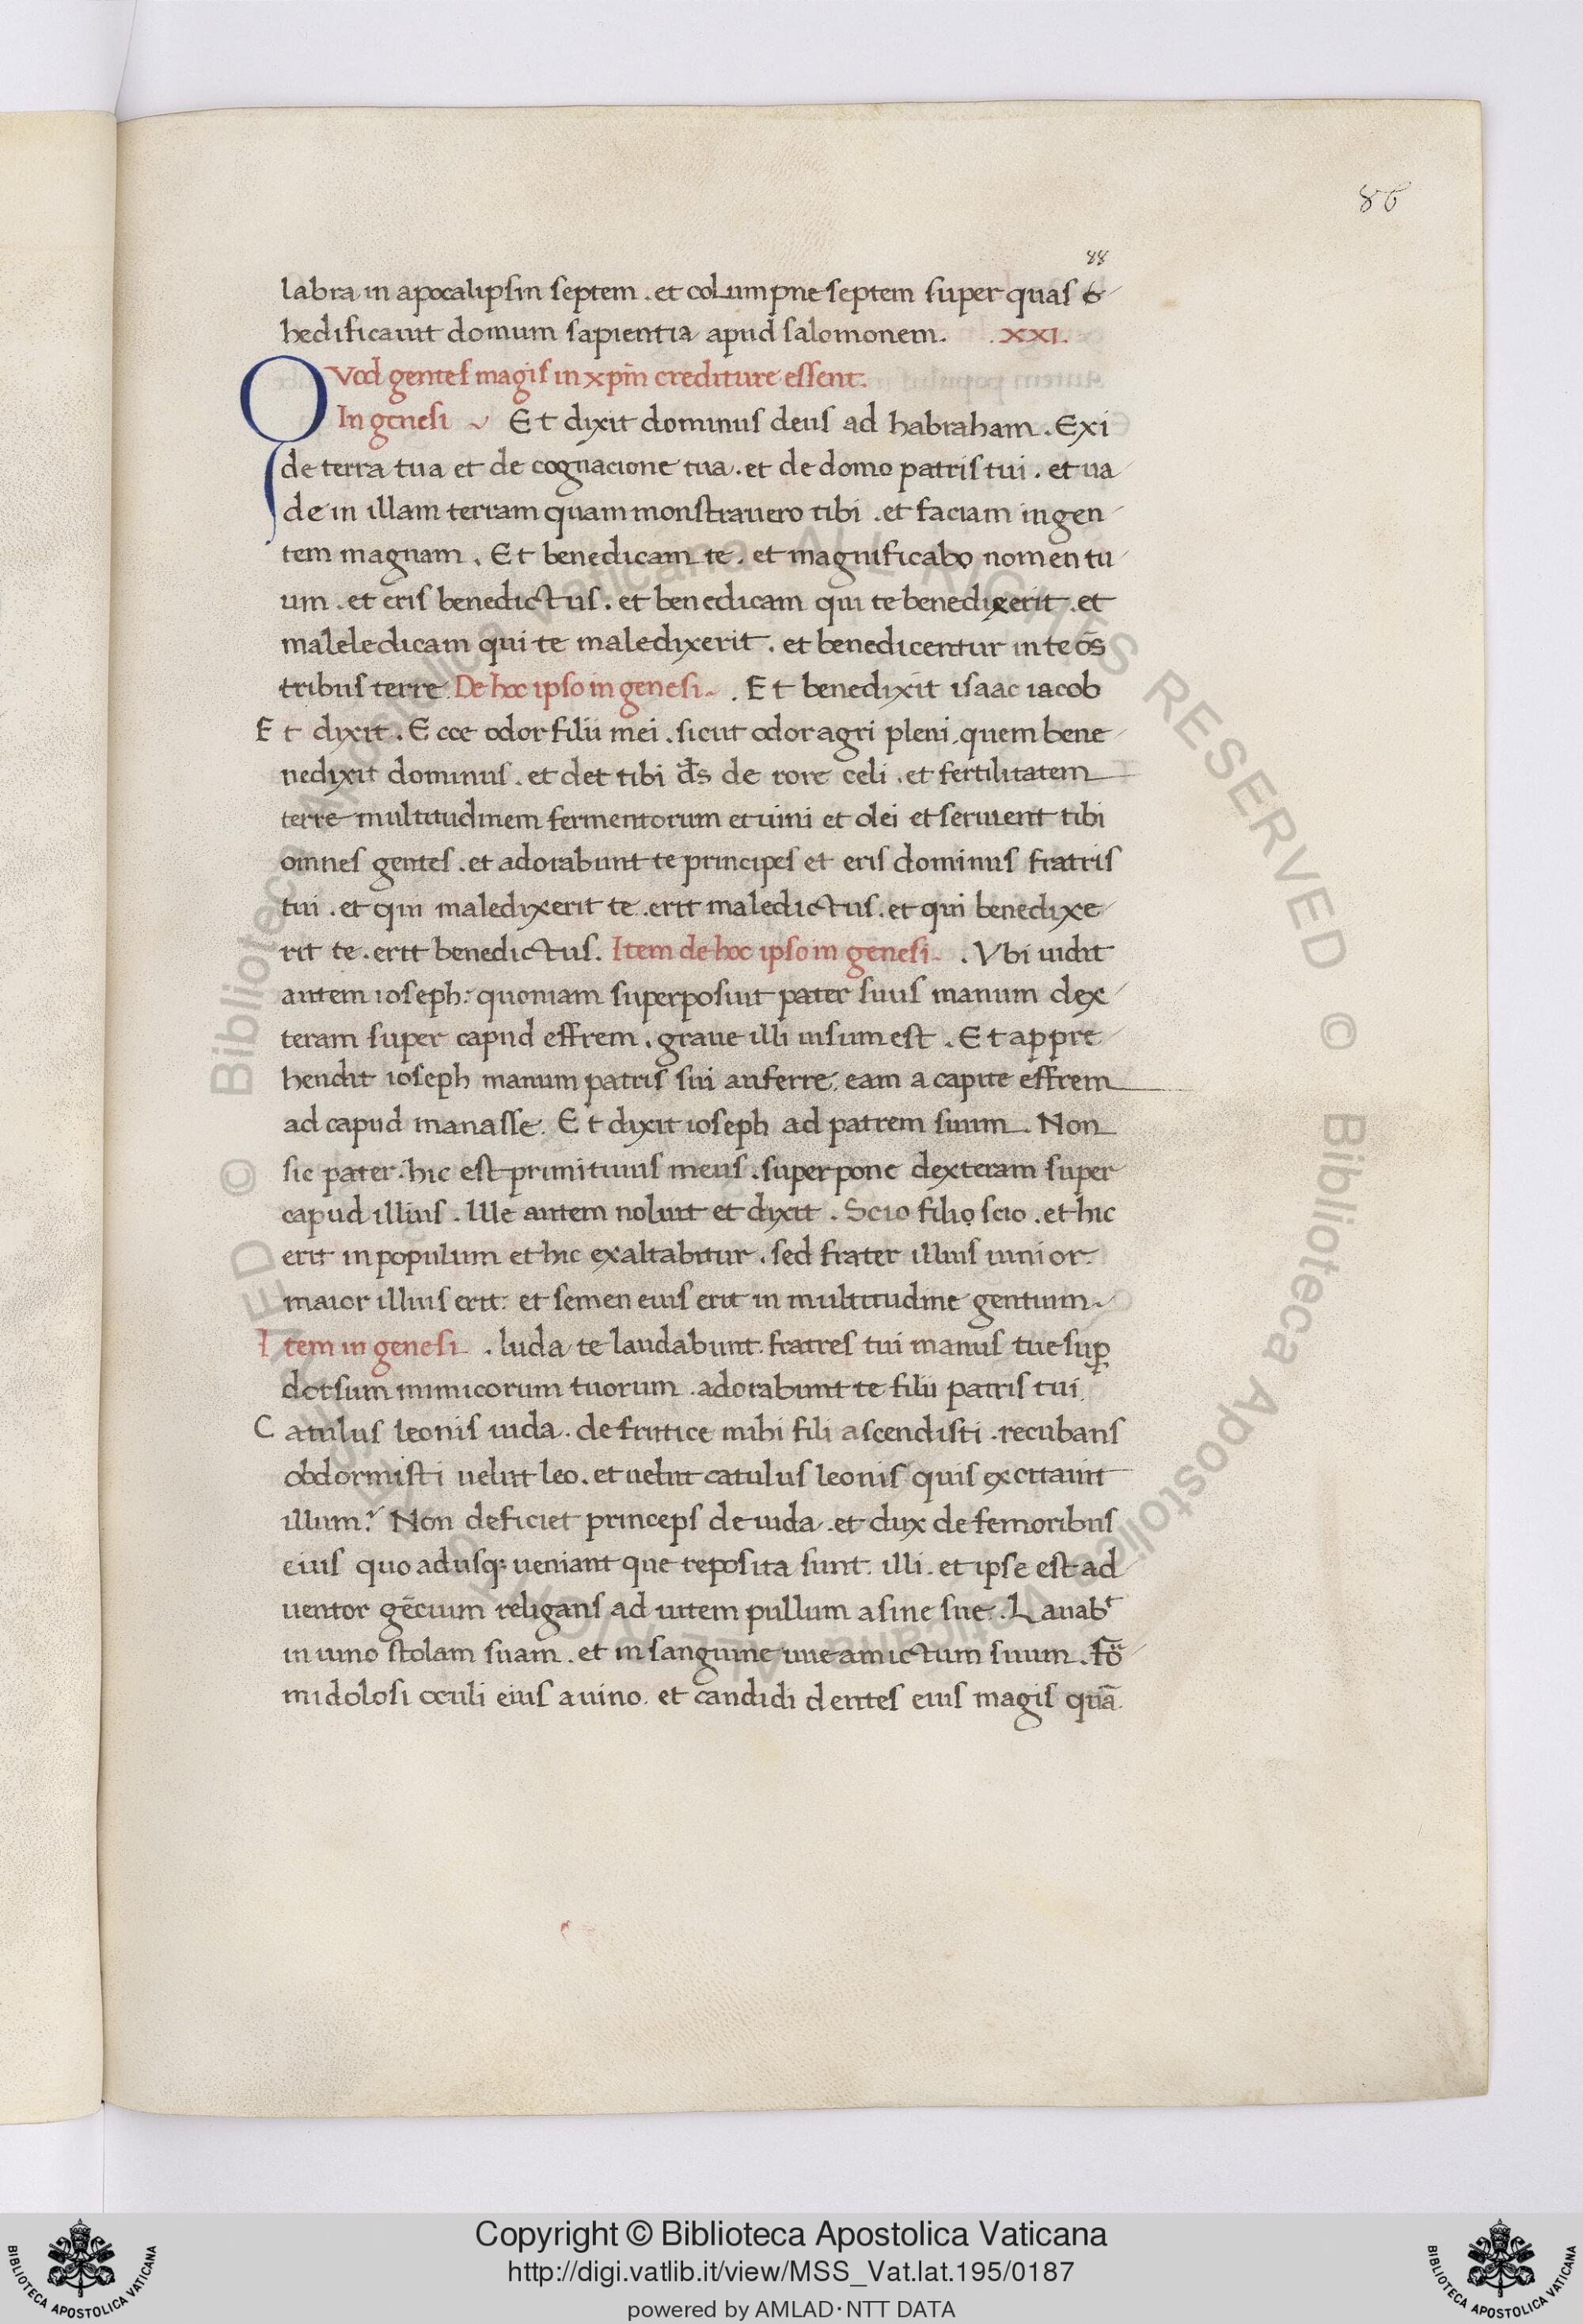 86
88
labra in apocalipsin septem . et columpne septem super quas
hedificauit domum sapientia apud salomonem . .XXI.
QVod gentes magis in xp̄m crediture essent.
In genesi Et dixit dominus deus ad habraham . Exi
de terra tua et de cognacione tua . et de domo patris tui . et ua
de in illam terram quam monstrauero tibi . et faciam in gen
tem magnam . Et benedicam te . et magnificabo nomen tu
um . et eris benedictus . et benedicam qui te benedixerit . et
maleledicam qui te maledixerit . et benedicentur in te oēs
tribus terre . De hoc ipso in genesi . Et benedixit isaac iacob
Et dixit . Ecce odor filii mei . sicut odor agri pleni . quem bene
nedixit dominus . et det tibi d̄s de rore celi . et fertilitatem
terre multitudinem fermentorum et uini et olei et seruient tibi
omnes gentes . et adorabunt te principes et eris dominus fratris
tui . et qui maledixerit te . erit maledictus . et qui benedixe
rit te . erit benedictus . Item de hoc ipso in genesi . Vbi uidit
autem ioseph : quoniam superposuit pater suus manum dex
teram super capud effrem . graue illi uisum est . Et appre
hendit ioseph manum patris sui auferre . eam a capite effrem
ad capud manasse . Et dixit ioseph ad patrem suum . Non
sic pater . hic est primitiuus meus . superpone dexteram super
capud illius . Ille autem noluit et dixit . Scio filio scio . et hic
erit in populum et hic exaltabitur . sed frater illius iunior .
maior illius erit : et semen eius erit in multitudine gentium
Item in genesi . Iuda te laudabunt . fratres tui manus tue suꝑ
dorsum inimicorum tuorum . adorabunt te filii patris tui .
Catulus leonis iuda . de frutice mihi fili ascendisti . recubans
obdormisti uelut leo . et uelut catulus leonis quis excitauit
illum ? Non deficiet princeps de iuda . et dux de femoribus
eius quo adusq: ueniant que reposita sunt . illi . et ipse est ad
uentor gēcium religans ad uitem pullum asine sue . Lauabt
in uino stolam suam . et in sanguine uue amictum suum .
midolosi oculi eius a uino . et candidi dentes eius magis quā
© Biblioteca Apostolica Vaticana ALL RIGHTS RESERVED © Biblioteca Apostolica Vaticana ALL RIGHTS RESERVED
Copyright © Biblioteca Apostolica Vaticana
http://digi.vatlib.it/view/MSS_Vat.lat.195/0187
powered by AMLAD·NTT DATA
BIBLIOTECA APOSTOLICA VATICANA
BIBLIOTECA APOSTOLICA VATICANA